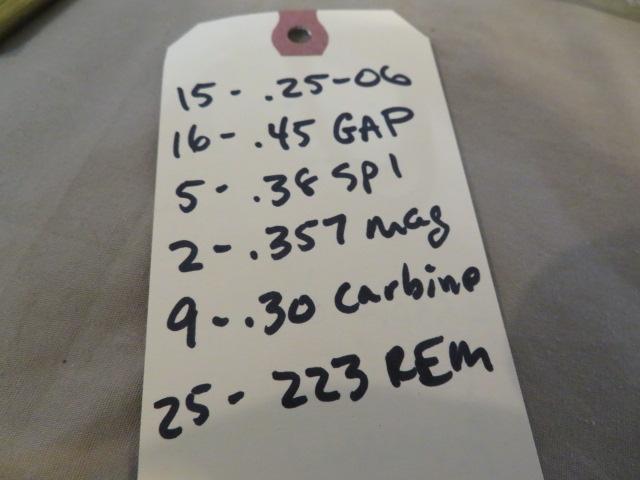 15 - .25-06
16 - .45 GAP
5 - .38 Spl
2 - .357 mag
9 - .30 Carbine
25 - 223 REM